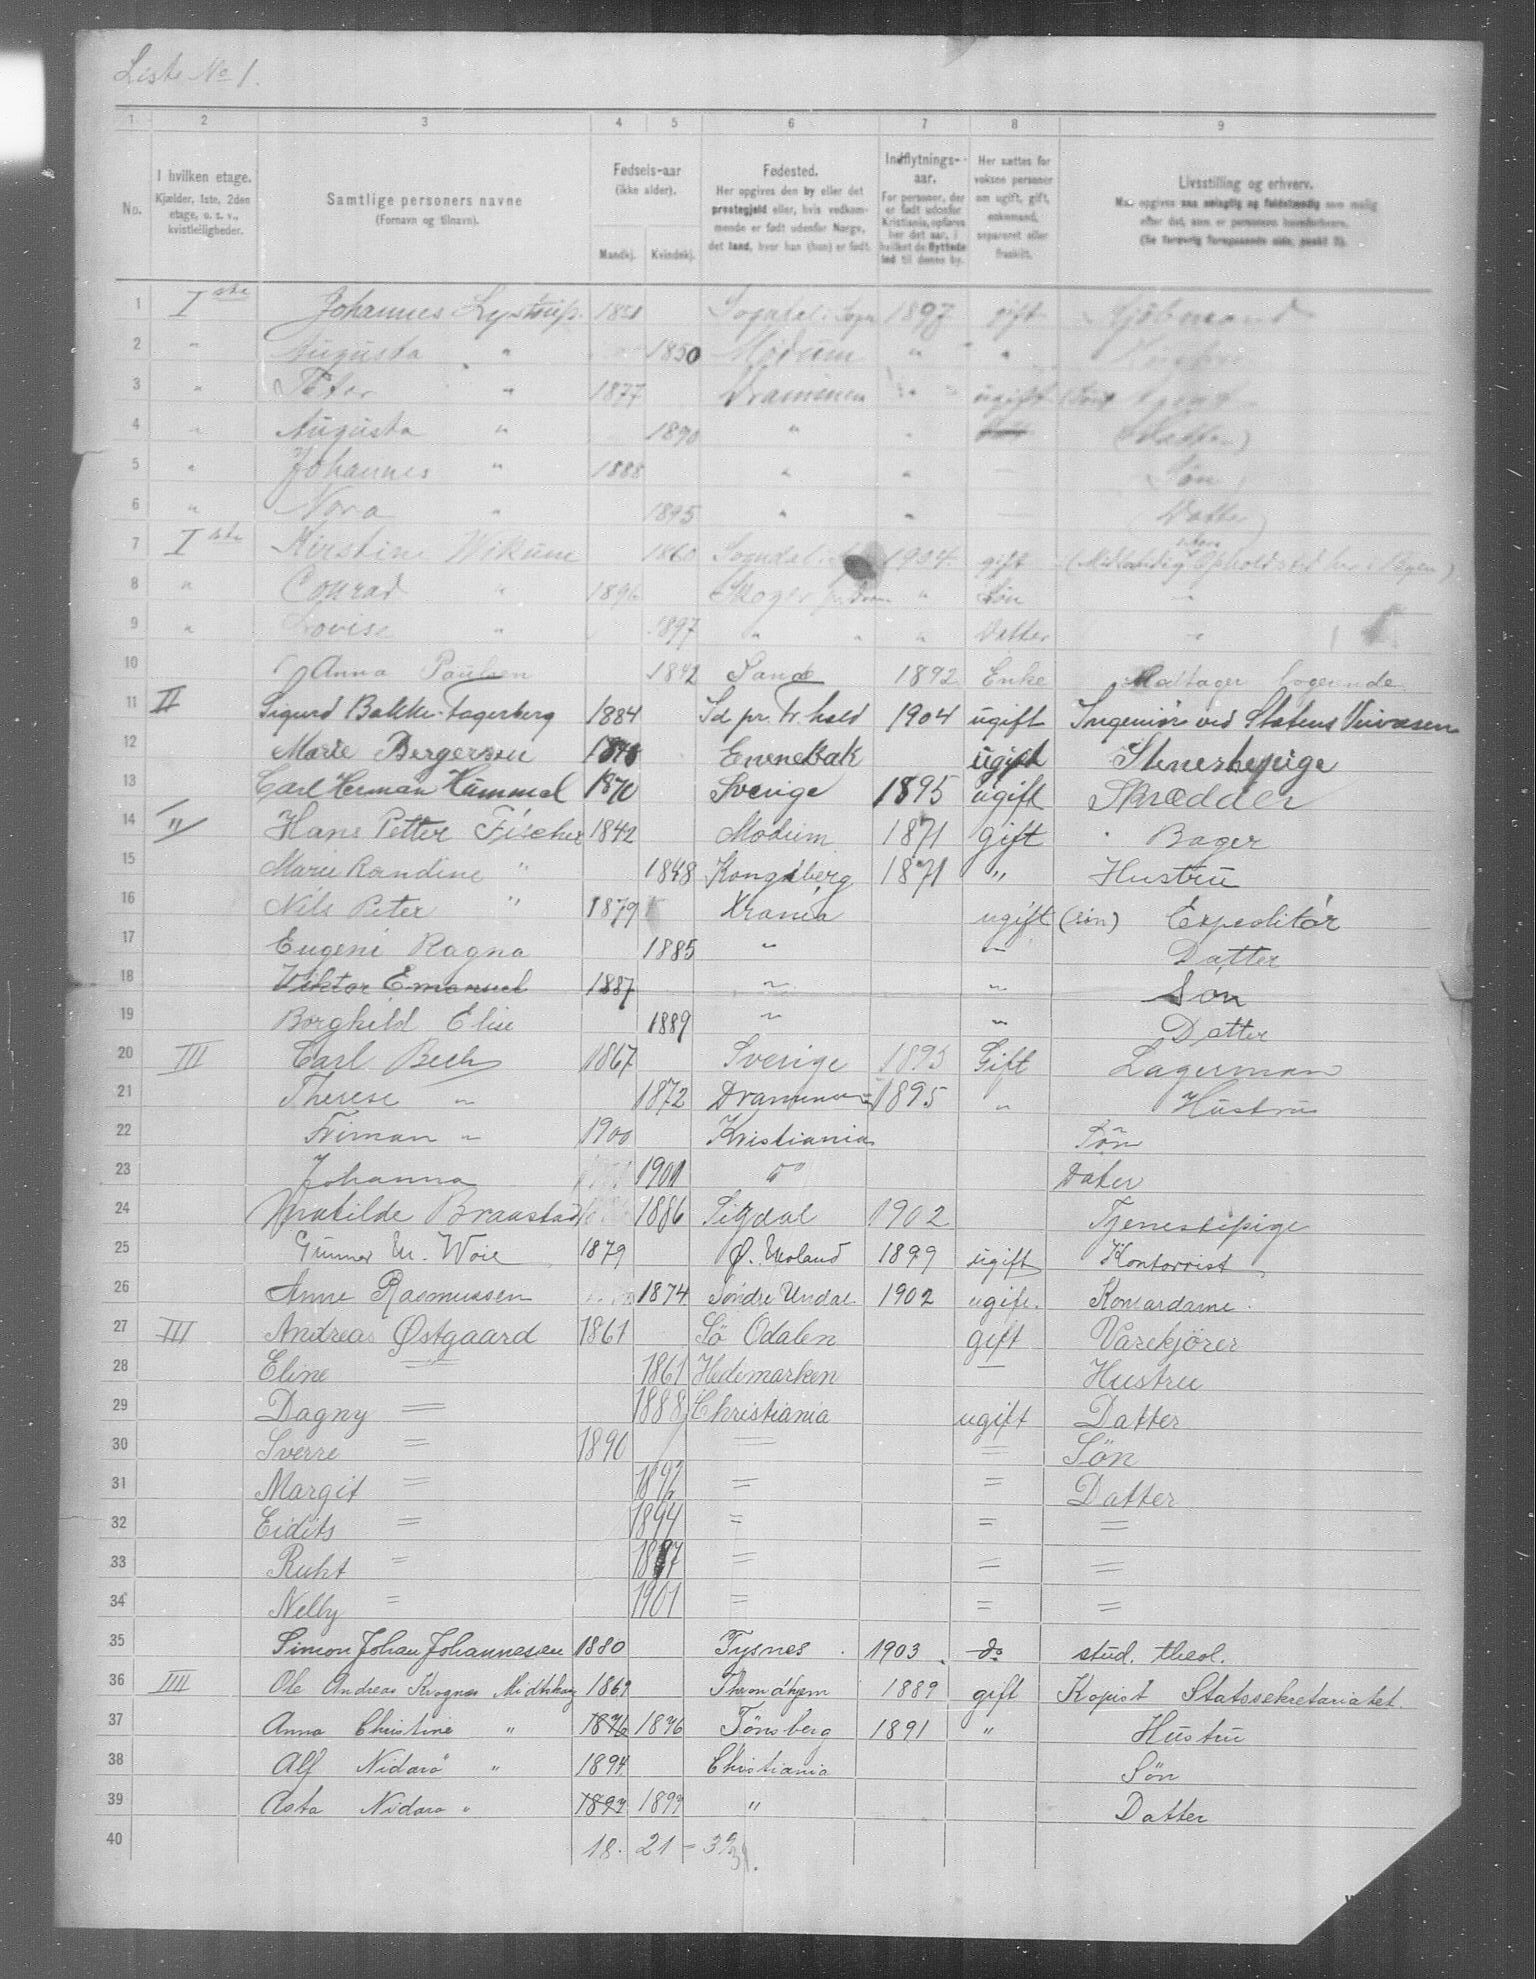 Liste No 1.
1 2 3 4 5 6 7 8 9
No.
I hvilken etage.
Kjælder, 1ste, 2den
etage, o. s. v.,
kvistleiligheder.
Samtlige personers navne
(Fornavn og tilnavn).
Fødsels-aar
(ikke alder).
Mandkj. Kvindekj.
Fødested.
Her opgives den by eller det
prestegjeld eller, hvis vedkom-
mende er født udenfor Norge,
det land, hvor han (hun) er født.
Indflytnings-
aar.
For personer, der
er født udenfor
Kristiania, opføres
her det aar, i
hvilket de flyttede
ind til denne by.
Her sættes for
voksne personer
om ugift, gift,
enkemand,
separeret eller
fraskilt.
Livsstilling og erhverv.
Man opgives saa nøiagtig og fuldstændig som mulig
efter det, som er personens hovederhverv.
1 I ste Johannes Lystrup. Sogndal i Sogn 1897 gift Kjøbmand
2 " Augusta " 1850 Modum " "
3 " Peter " 1877 Drammen " " ugift
4 " Augusta " 1890 " " (Datter)
5 " Johannes " 1888 " " Søn
6 " Nora " 1895 " " Datter
7 I ste Kirstine Wikune 1860 Sogndal i 1904. gift (Midlertidig Ophold sted her i Byen)
8 " Conrad " 1896 Skoger " Søn "
9 " Lovise " 1897 " " " Datter "
10 Anna Paulsen 1842 Sande 1892 Enke Modtager logerende
11 II Sigurd Bakke-Fagerberg 1884 Id pr. Fr.hald 1904 ugift Ingeniör ved Statens Veivæsen
12 Marie Bergersen Ennebak ugift
13 Carl Herman Hummel 1870 Sverige 1895 ugift Skrædder
14 " Hans Petter Fischer 1842 Modum 1871 gift Bager
15 Marie Randine " 1848 Kongsberg 1871 " Hustru
16 Nils Peter " 1879 Krania ugift (sön) Expeditör
17 Eugeni Ragna 1885 " " Datter
18 Viktor Emanuel 1887 " " Søn
19 Borghild Elise 1889 " " Datter
20 III Carl Bech 1867 Sverige 1895 Gift Lagerman
21 Therese " 1872 Drammen 1895 " Hustru
22 Friman " 1900 Kristiania Sön
23 Johanna 1901 " Dater
24 Matilde Braastad 1886 Sigdal 1902 Tjenestepige
25 Gunner M. Woie 1879 Ø. Moland 1899 ugift Kontorrist
26 Anne Rasmussen 1874 Söndre Undal 1902 ugift.
27 III Andreas Østgaard 1861 Sö Odalen gift Varekjörer
28 Eline = 1861 Hedemarken — Hustru
29 Dagny = 1888 Christiania ugift Datter
30 Sverre = 1890 = = Sön
31 Margit = 1892 = = Datter
32 Eidits = 1894 = = =
33 Ruht = 1897 = = =
34 Nelly = 1901 = = =
35 Simon Johan Johannesen 1880 Tysnes 1903 do stud. theol.
36 IIII Ole Andreas Krogness Midtskog 1869 Throndhjem 1889 gift Kopist Statssekretariatet.
37 Anna Christine " 1876 1876 Tönsberg 1891 " Hustru
38 Alf Nidarö " 1894 Christiania Sön
39 Asta Nidarö " 1897 1897 " Datter
40 18. 21 - 39